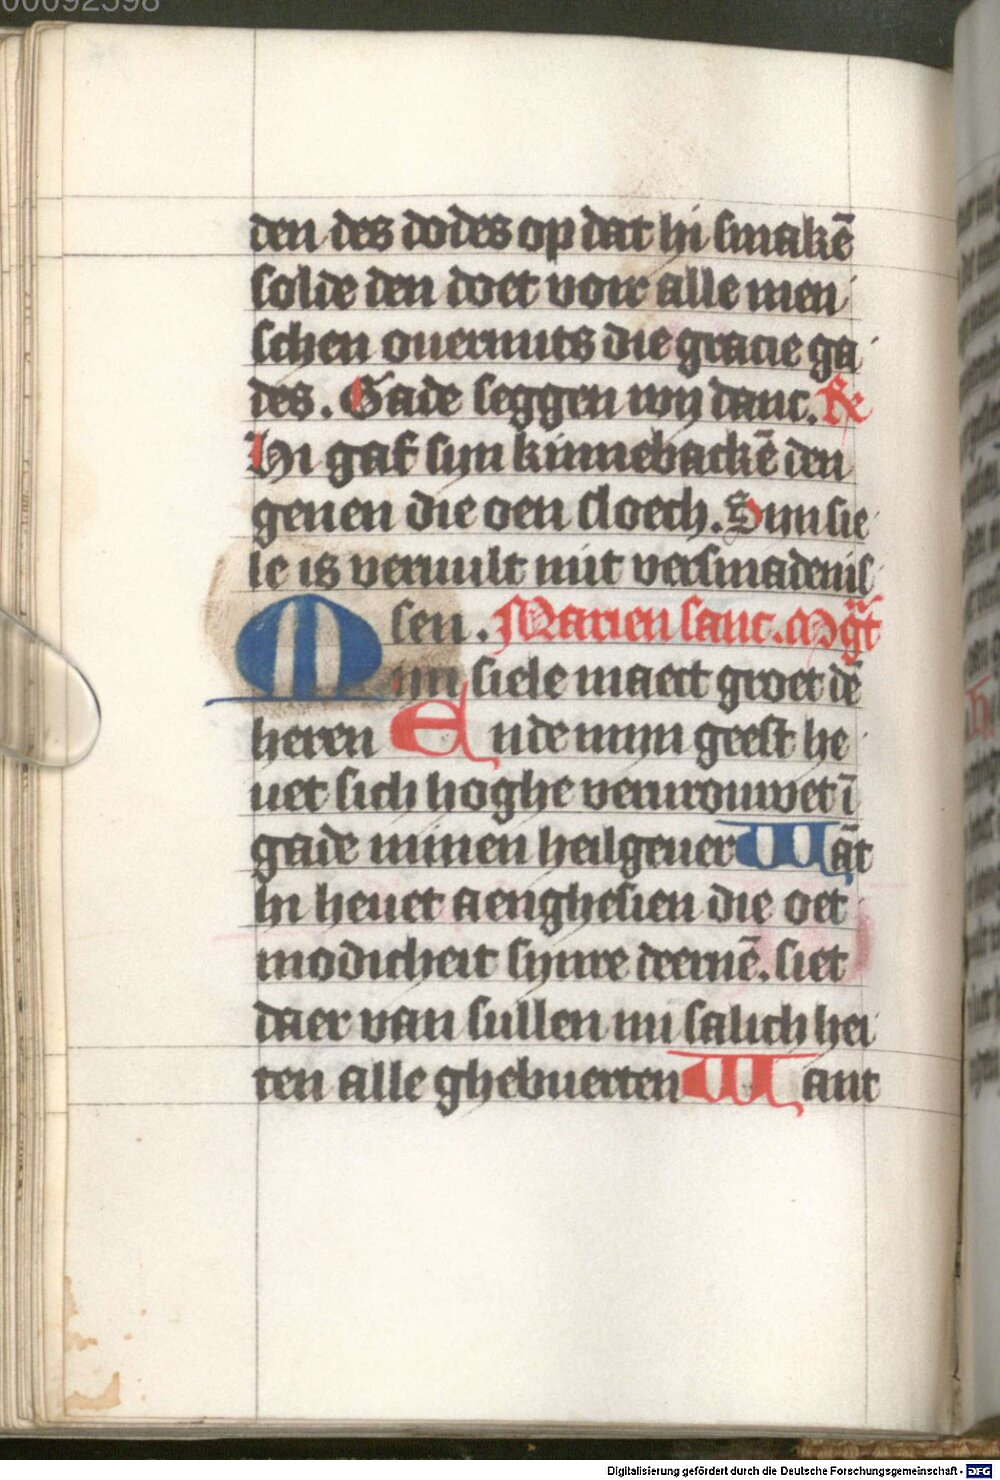 00092598
den des dodes op dat hi smakē
solde den doet voir alle men
schen ouermits die gracie ga
des. Gade seggen wy danc. R
Hi gaf syn kinnebackē den
genen die oen sloech. Syn sie
le is veruult mit versmadenis
sen. Marien sanc. Mgt̄
Myn siele maect groet dē
heren Ende myn geest he
uet sich hoghe verurouwet ī
gade minen heilgeuer Wāt
hi heuet aenghesien die oet
modicheit synre deernē. siet
daer van sullen mi salich hei
ten alle ghebuerten Want
Digitalisierung gefördert durch die Deutsche Forschungsgemeinschaft - DFG